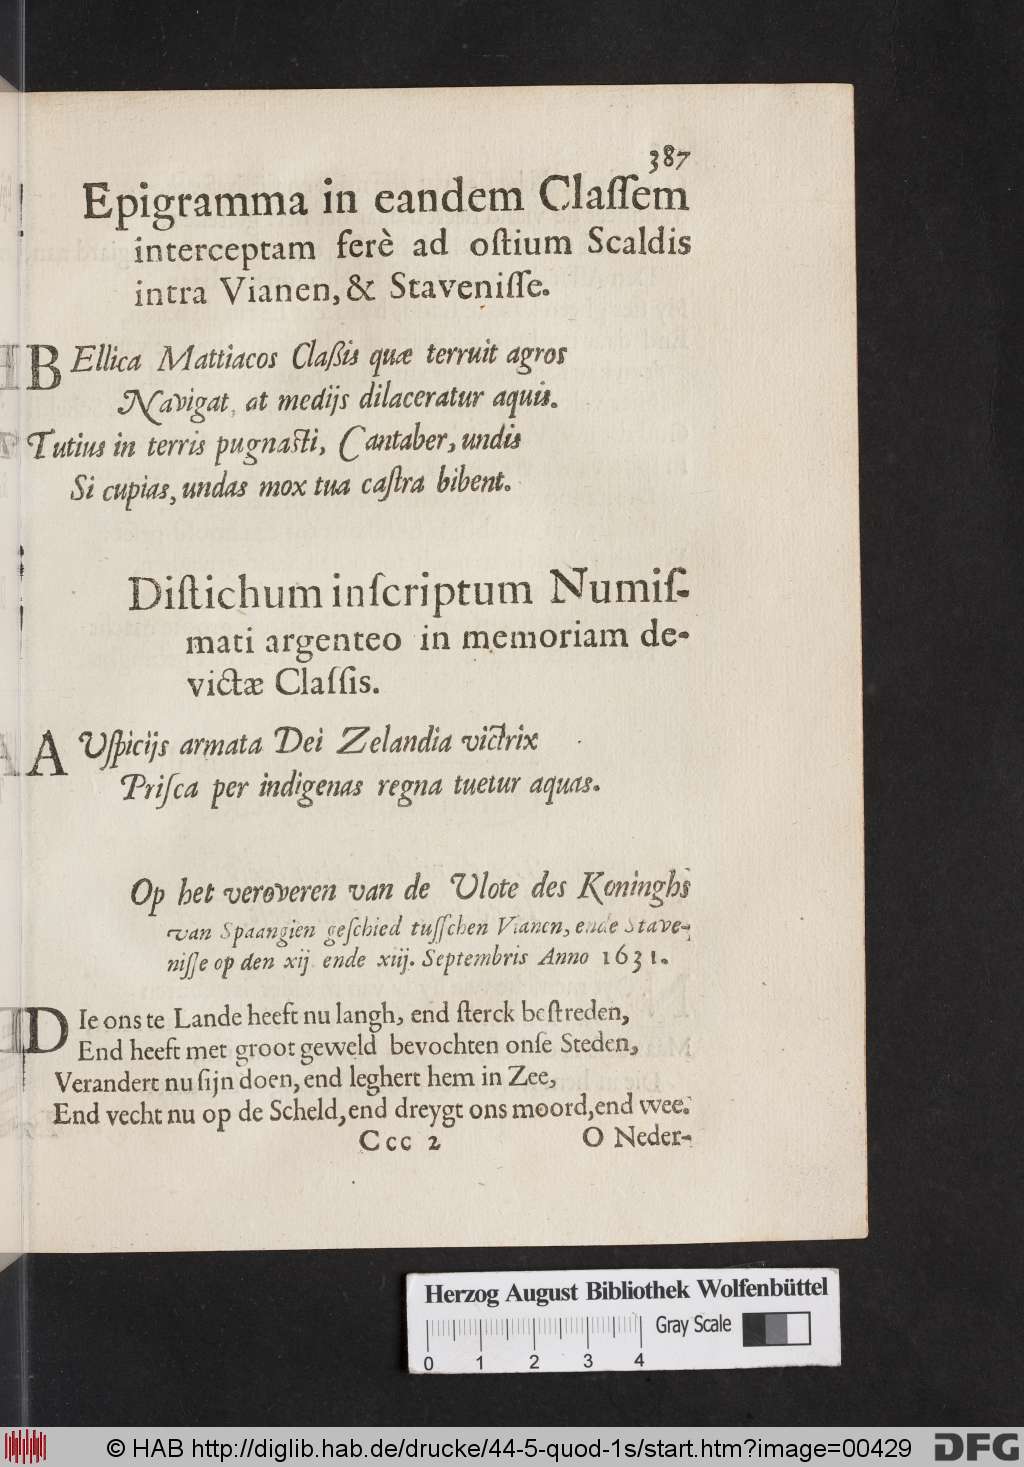 387
Epigramma in eandem Claſſem
interceptam ferè ad oſtium Scaldis
intra Vianen, & Staveniſſe.
BEllica Mattiacos Claßis quæ terruit agros
Navigat, at medijs dilaceratur aquis.
Tutius in terris pugnaſti, Cantaber, undis
Si cupias, undas mox tua caſtra bibent.
Diſtichum inſcriptum Numiſ-
mati argenteo in memoriam de-
victæ Claſſis.
AUſpicijs armata Dei Zelandia victrix
Priſca per indigenas regna tuetur aquas.
Op het veroveren van de Vlote des Koninghs
van Spaangien geſchied tuſſchen Vianen, ende Stave-
niſſe op den xij ende xiij. Septembris Anno 1631.
DIe ons te Lande heeft nu langh, end ſterck beſtreden,
End heeft met groot geweld bevochten onſe Steden,
Verandert nu ſijn doen, end leghert hem in Zee,
End vecht nu op de Scheld, end dreygt ons moord, end wee.
Ccc 2 O Neder-
Herzog August Bibliothek Wolfenbüttel
Gray Scale
0 1 2 3 4
© HAB http://diglib.hab.de/drucke/44-5-quod-1s/start.htm?image=00429 DFG